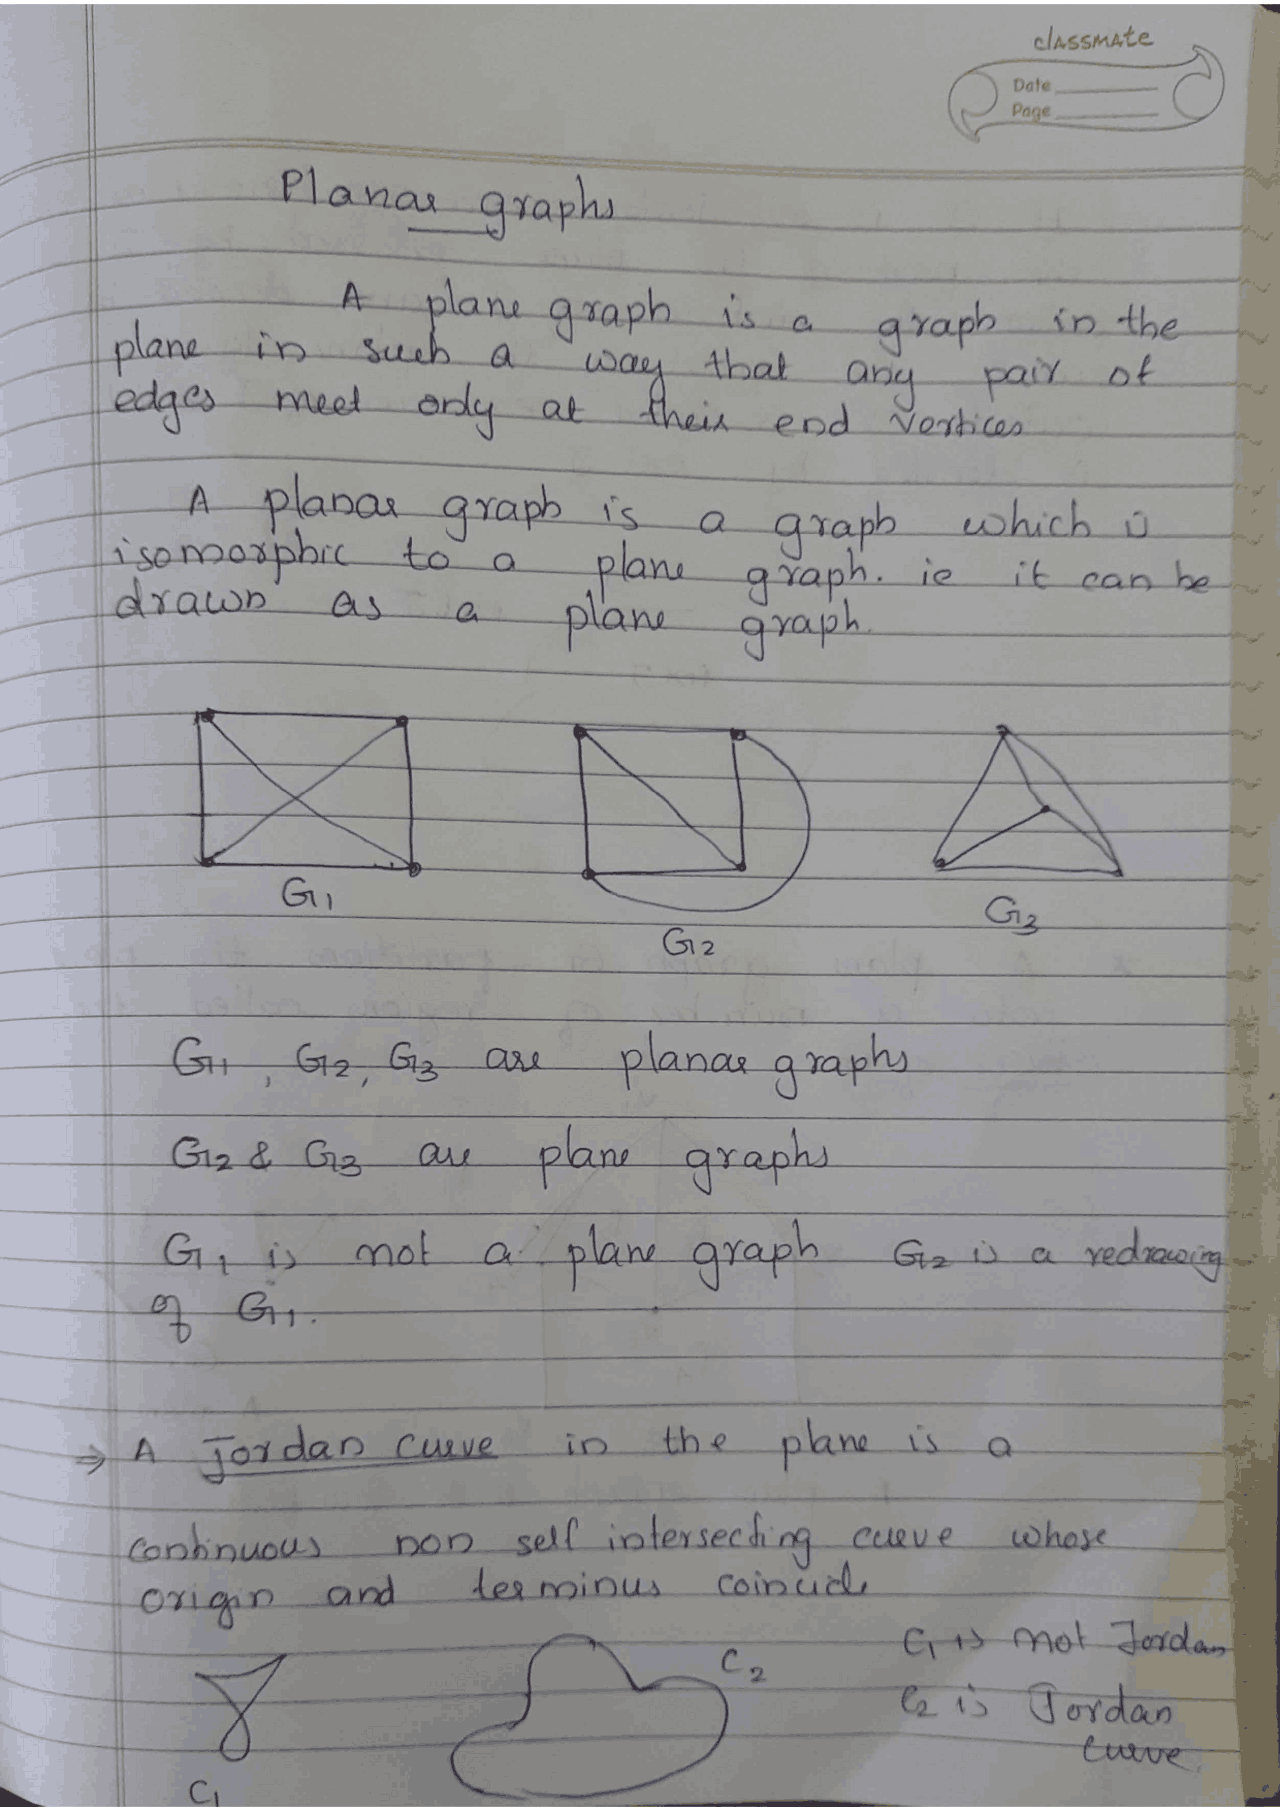 classmate
Date
Page
Planar graphs
A plane graph is a graph in the
plane in such a way that any pair of
edges meet only at their end vertices
A planar graph is a graph which is
isomorphic to a plane graph. ie it can be
drawn as a plane graph.
G1
G2
G3
G1, G2, G3 are planar graphs
G2 & G3 are plane graphs
G1 is not a plane graph G2 is a redrawing
of G1.
⇒ A Jordan curve in the plane is a
continuous non self intersecting curve whose
origin and terminus coincide
C1 is not Jordan
C2
C2 is Jordan
curve.
C1